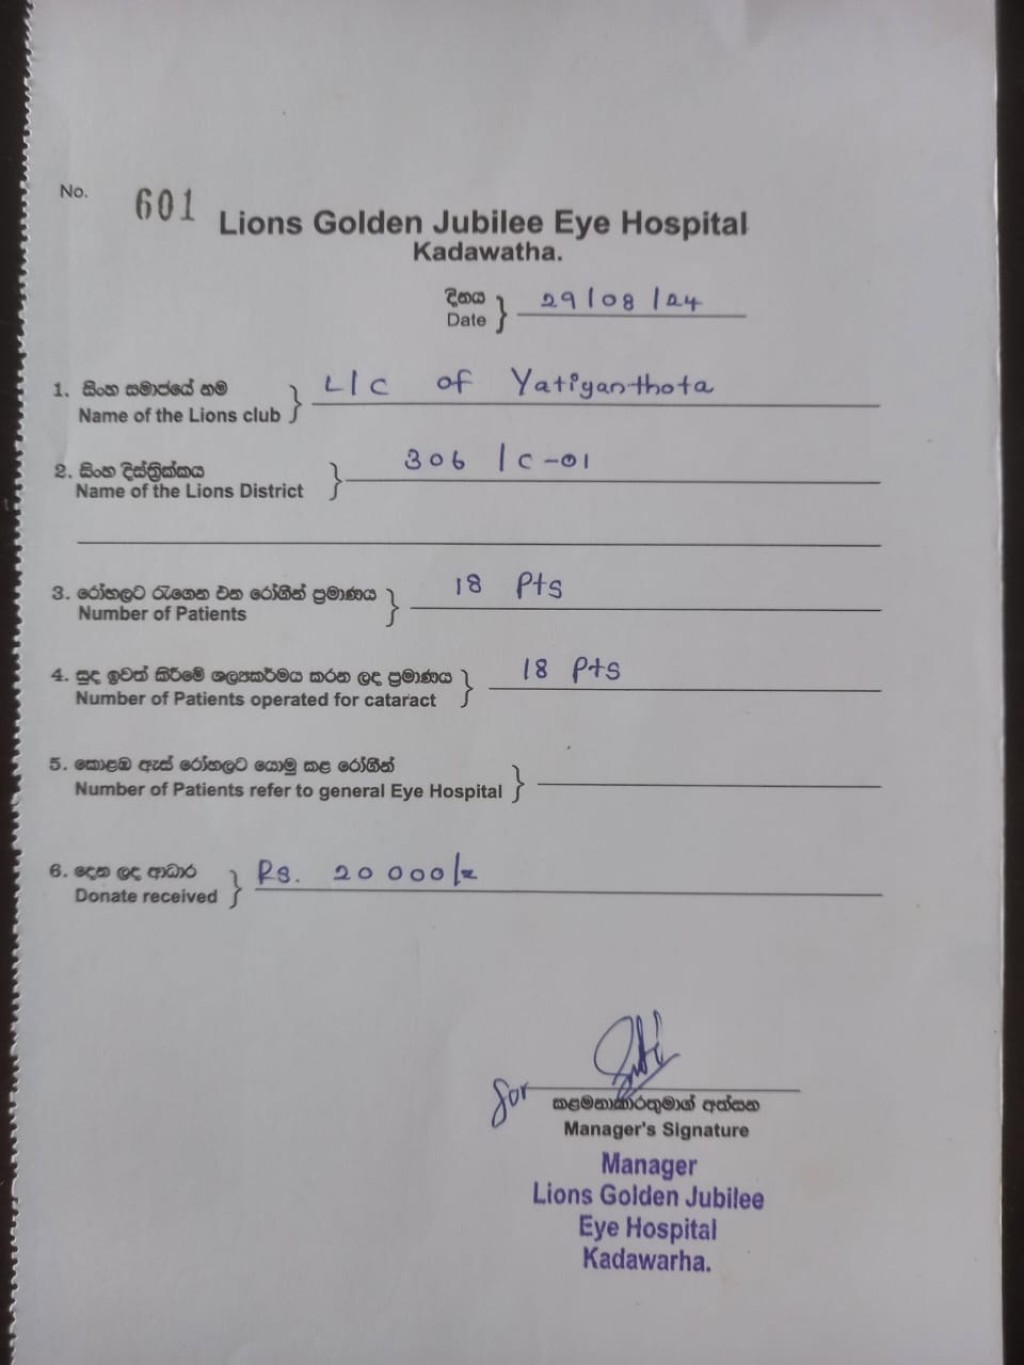 No. 601
Lions Golden Jubilee Eye Hospital
Kadawatha.
දිනය
Date } 29/08/24
1. සිංහ සමාජයේ නම
Name of the Lions club } L/C of Yatiyanthota
2. සිංහ දිස්ත්‍රික්කය
Name of the Lions District } 306 / C-01
3. රෝහලට රැගෙන එන රෝගීන් ප්‍රමාණය
Number of Patients } 18 Pts
4. සුද ඉවත් කිරීමේ ශල්‍යකර්මය කරන ලද ප්‍රමාණය
Number of Patients operated for cataract } 18 Pts
5. කොළඹ ඇස් රෝහලට යොමු කළ රෝගීන්
Number of Patients refer to general Eye Hospital }
6. දෙන ලද ආධාර
Donate received } Rs. 20 000/=
for
කළමනාකාරතුමාගේ අත්සන
Manager's Signature
Manager
Lions Golden Jubilee
Eye Hospital
Kadawarha.